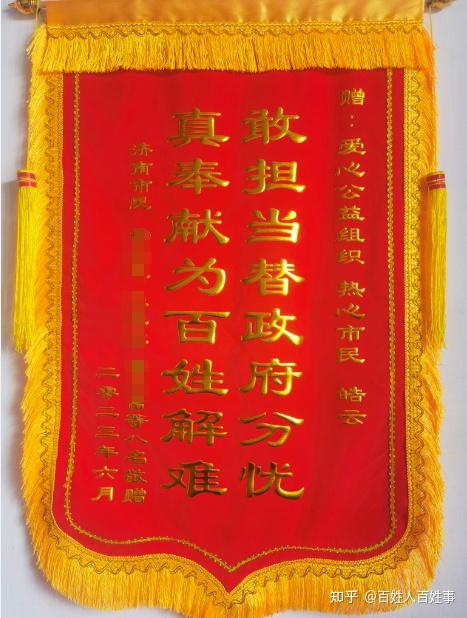 赠：爱心公益组织 热心市民 皓云
敢担当替政府分忧
真奉献为百姓解难
济南市民
等八名敬赠
二零二三年六月
知乎 @百姓人百姓事